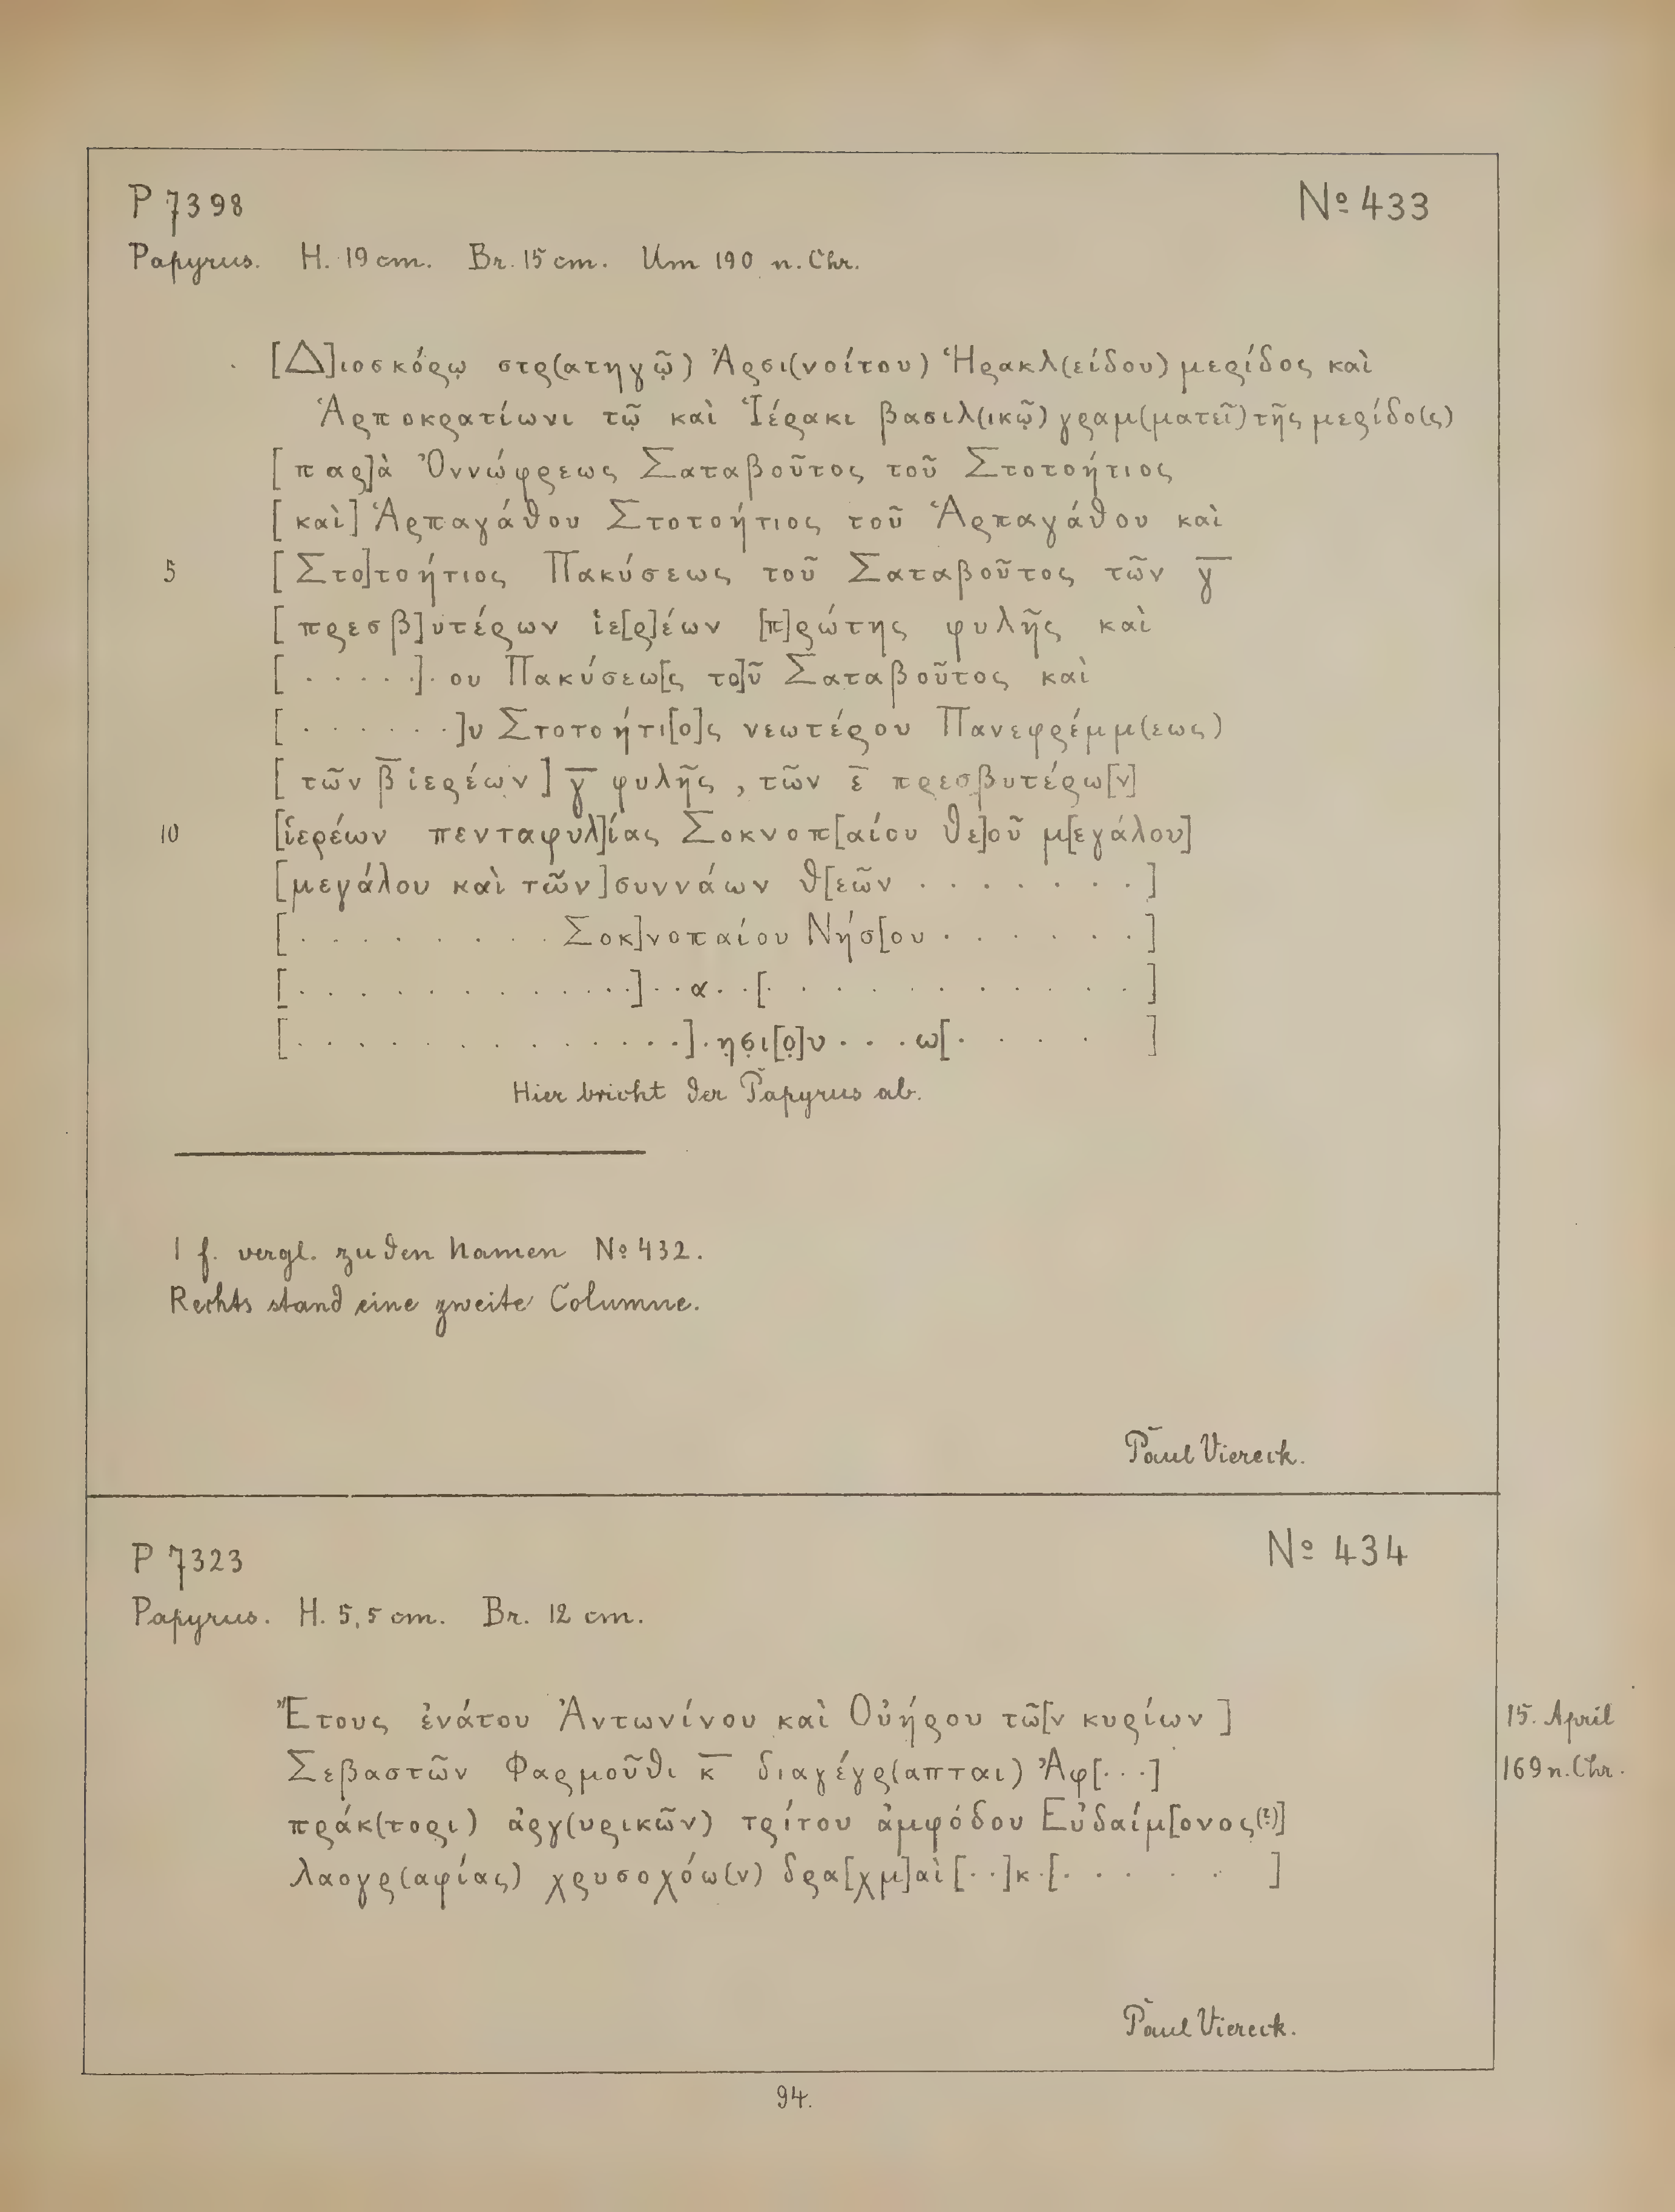 P 7398
Nº 433
Papyrus. H. 19 cm. Br. 15 cm. Um 190 n. Chr.
[Δ]ιοσκόρῳ στρ(ατηγῷ) Ἀρσι(νοίτου) Ἡρακλ(είδου) μερίδος καὶ
Ἁρποκρατίωνι τῷ καὶ Ἱέρακι βασιλ(ικῷ) γραμ(ματεῖ) τῆς μερίδο(ς)
[παρ]ὰ Ὀννώφρεως Σαταβοῦτος τοῦ Στοτοήτιος
[καὶ] Ἁρπαγάθου Στοτοήτιος τοῦ Ἁρπαγάθου καὶ
5 [Στο]τοήτιος Πακύσεως τοῦ Σαταβοῦτος τῶν γ̅
[πρεσβ]υτέρων ἱε[ρ]έων [π]ρώτης φυλῆς καὶ
[. . . . .] . ου Πακύσεω[ς το]ῦ Σαταβοῦτος καὶ
[. . . . . . .]υ Στοτοήτι[ο]ς νεωτέρου Πανεφρέμμ(εως)
[τῶν β̅ ἱερέων] γ̅ φυλῆς, τῶν ε̅ πρεσβυτέρω[ν]
10 [ἱερέων πενταφυλ]ίας Σοκνοπ[αίου θε]οῦ μ[εγάλου]
[μεγάλου καὶ τῶν] συννάων θ[εῶν . . . . . . .]
[. . . . . . . . . Σοκ]νοπαίου Νήσ[ου . . . . . .]
[. . . . . . . . . . . . .] . . α . . [. . . . . . . . . . .]
[. . . . . . . . . . . . . .] . η̣σ̣ι[ο̣]υ . . . ω[. . . . ]
Hier bricht der Papyrus ab.
1 f. vergl. zu den Namen Nº 432.
Rechts stand eine zweite Columne.
Paul Viereck.
P 7323
Nº 434
Papyrus. H. 5,5 cm. Br. 12 cm.
Ἔτους ἐνάτου Ἀντωνίνου καὶ Οὐήρου τῶ[ν κυρίων ] 15. April
Σεβαστῶν Φαρμοῦθι κ̅ διαγέγρ(απται) Ἀφ[. . .] 169 n. Chr.
πράκ(τορι) ἀργ(υρικῶν) τρίτου ἀμφόδου Εὐδαίμ[ονος(?)]
λαογρ(αφίας) χρυσοχόω(ν) δρα[χμ]αὶ [. .]κ . [. . . . . ]
Paul Viereck.
94.